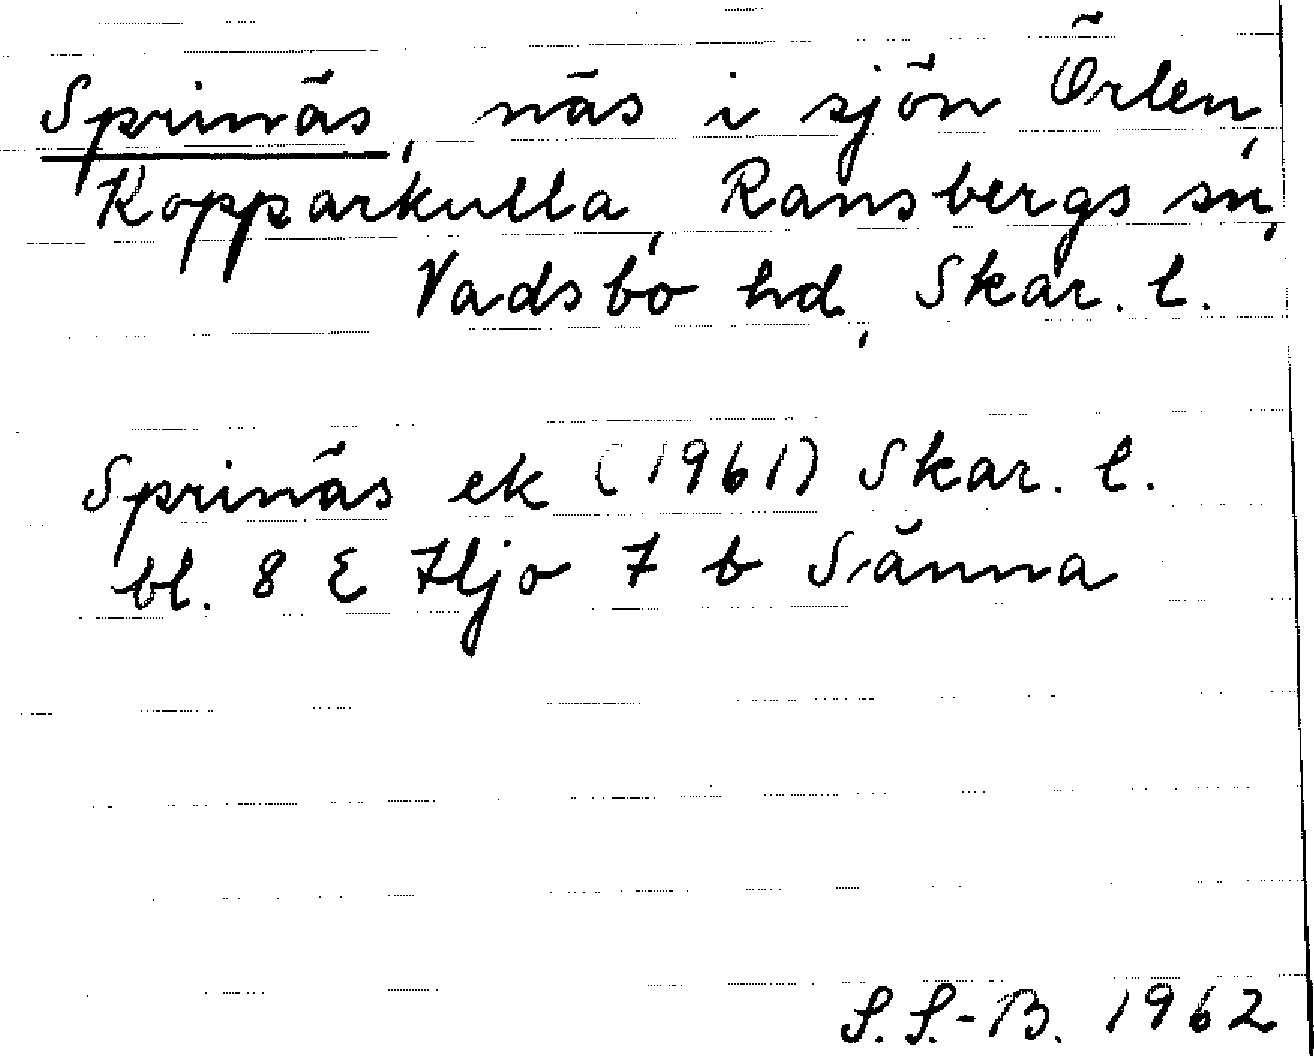 Sprinäs, näs i sjön Örlen,
Kopparkulla, Ransbergs sn,
Vadsbo hd, Skar. l.
Sprinäs ek (1961) Skar. l.
bl. 8 E Hjo 7 b Sänna
S.S.-B. 1962